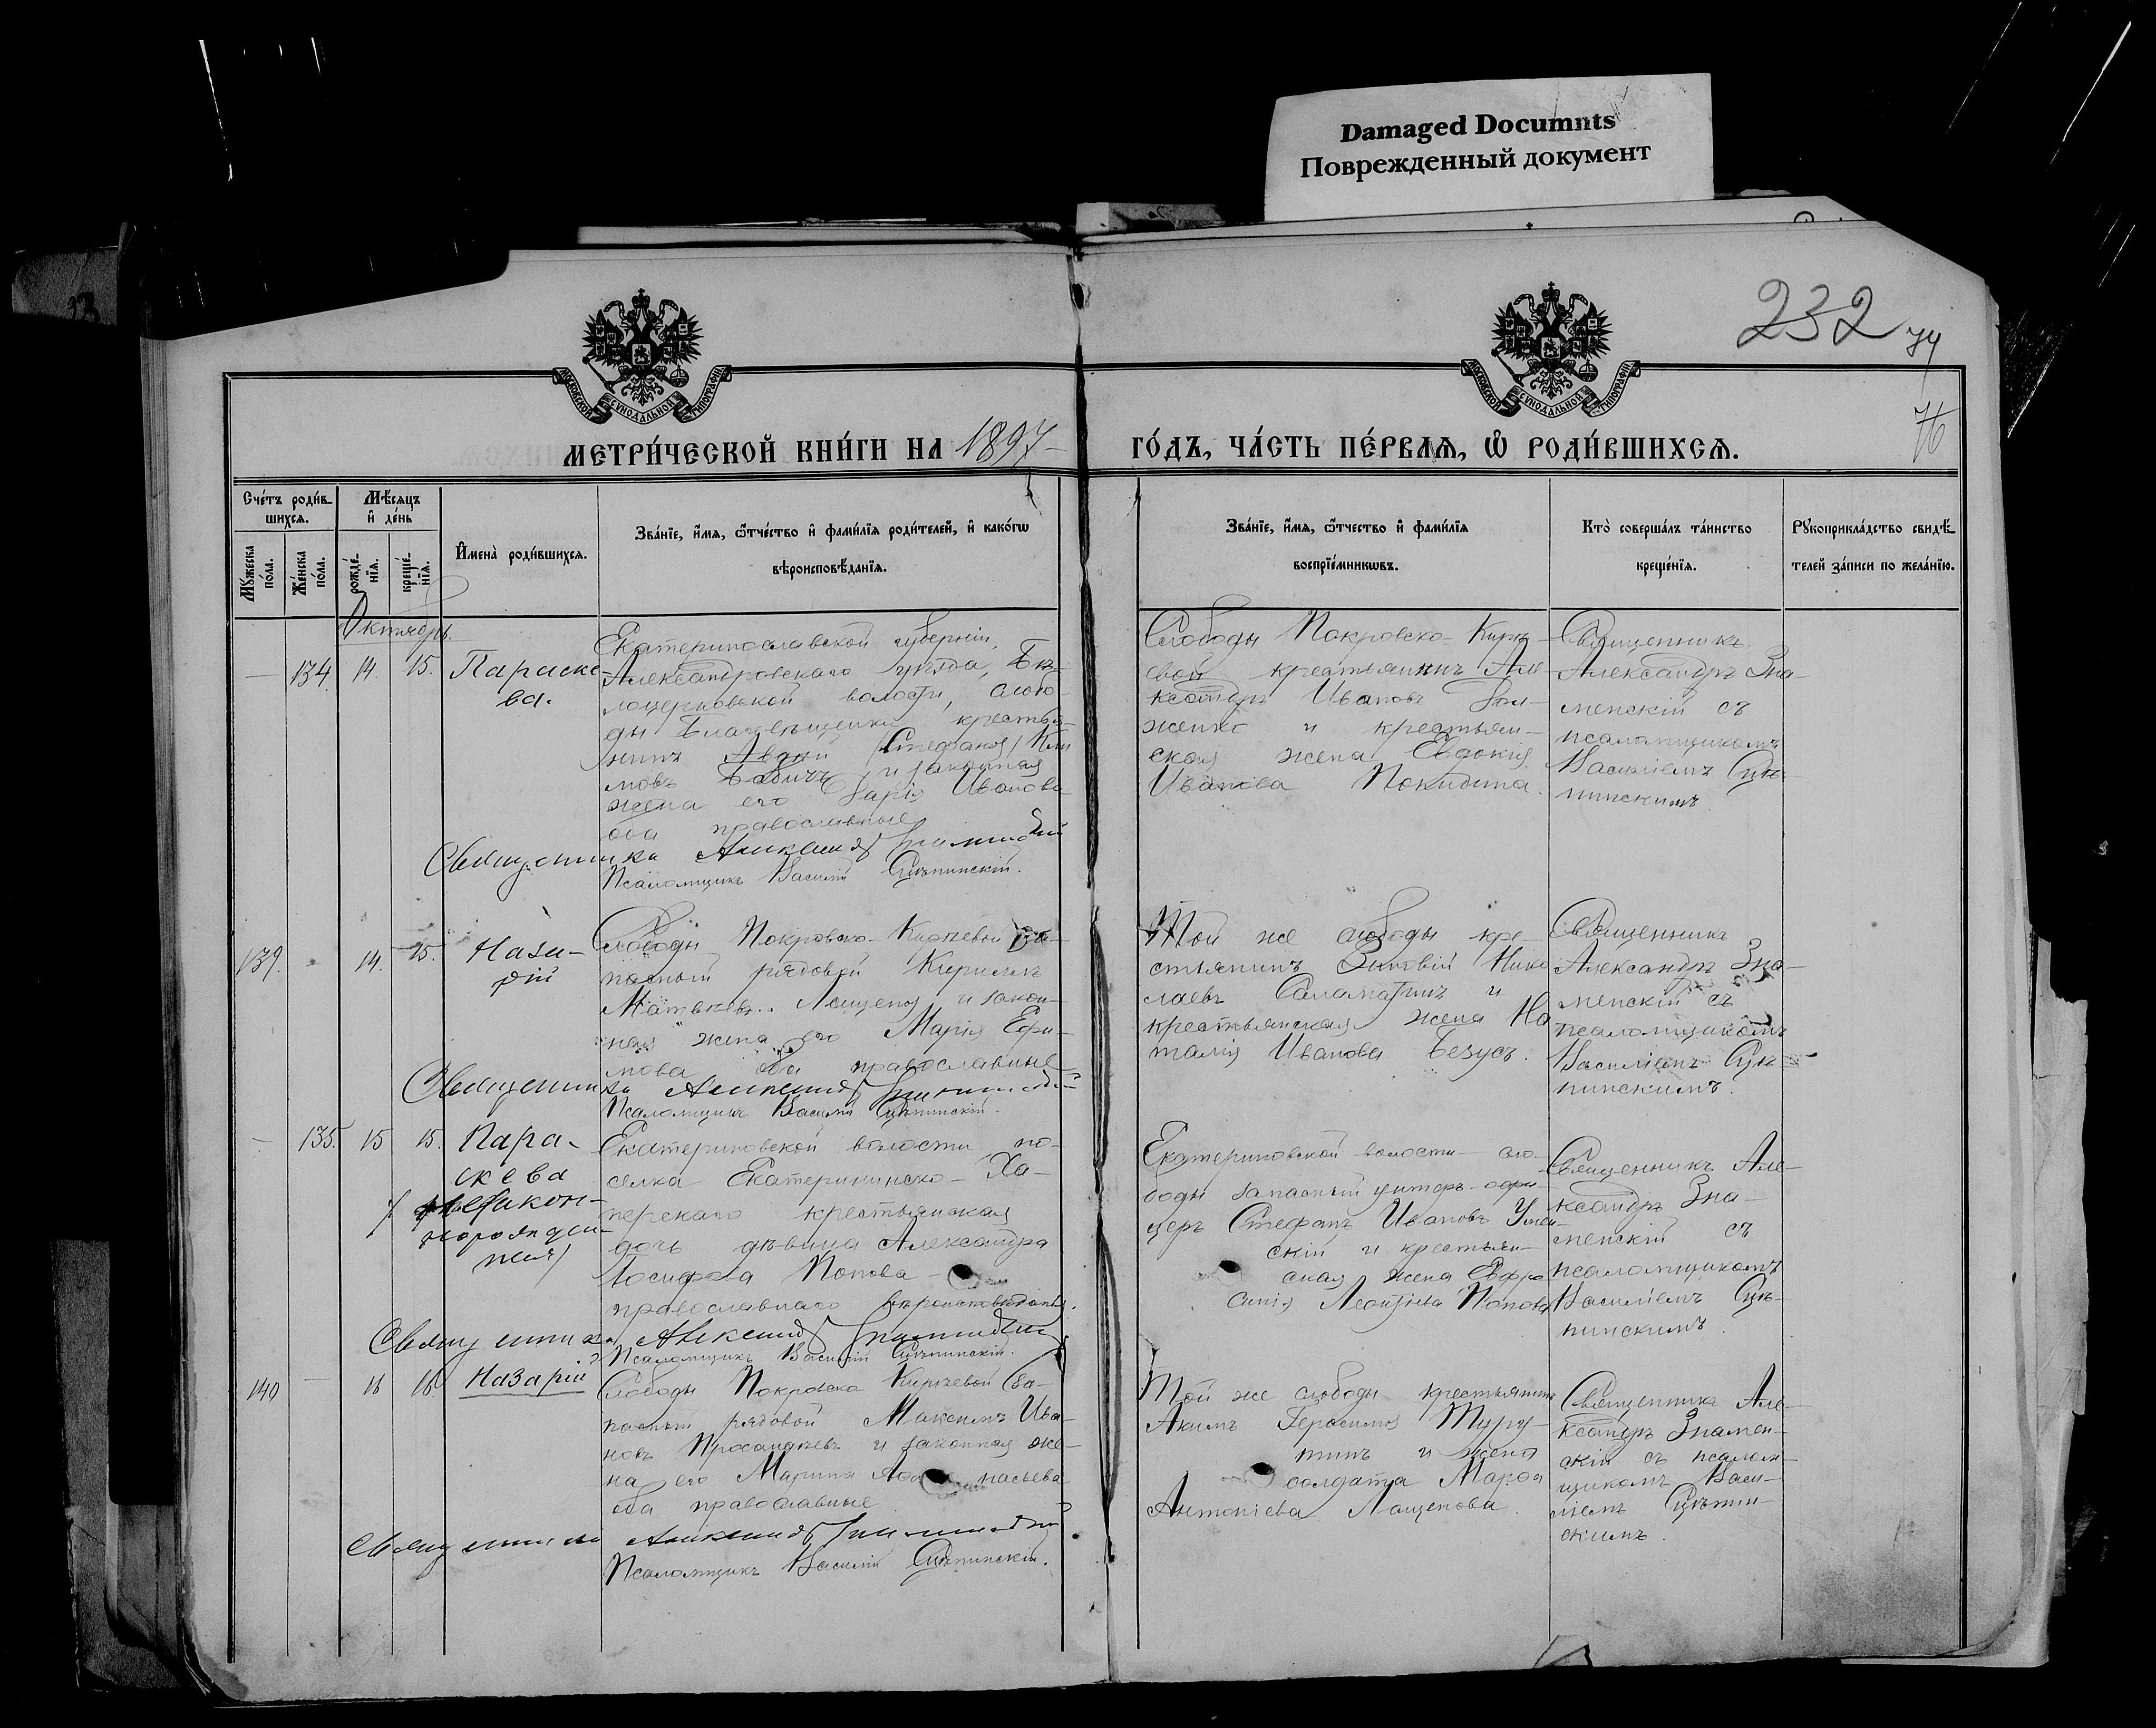 Damaged Documnts
Поврежденный документ
232
74
76
МОСКОВСКОЙ СѴНОДАЛЬНОЙ ТИПОГРАФІИ
МОСКОВСКОЙ СѴНОДАЛЬНОЙ ТИПОГРАФІИ
МЕТРИ́ЧЕСКОЙ КНИ́ГИ НА 1897
ГО́ДЪ, ЧА́СТЬ ПЕ́РВАѦ, Ѽ РОДИ́ВШИХСѦ.
Сче́тъ роди́в-
шихсѧ.
Мꙋ́жеска по́ла.
Же́нска по́ла.
Мѣ́сѧцъ и҆ де́нь
рожде́-нїѧ.
креще́-нїѧ.
И҆мена̀ роди́вшихсѧ.
Зва́нїе, и҆́мѧ, ѻ҆́тчество и҆ фами́лїѧ роди́телей, и҆ како́гѡ
вѣроисповѣ́данїѧ.
Зва́нїе, и҆́мѧ, ѻ҆́тчество и҆ фами́лїѧ
воспрїе́мникѡвъ.
Кто̀ соверша́лъ та́инство
креще́нїѧ.
Рꙋкоприкла́дство свидѣ́-
телей за́писи по жела́нїю.
Октябрь.
134. 14. 15. Параске-
ва.
Екатеринославской губерніи,
Александровскаго уѣзда, Бѣ-
лоцерковской волости, слобо-
ды Благовѣщенки крестья-
нинъ Авдій (Стефанъ) Кли
мовъ Бабичъ и законная
жена его Дарія Иванова
оба православные
Священникъ Александръ Знаменскій
Псаломщикъ Василій
Слободы Покровско-Кирѣ-
евой крестьянинъ Але-
ксандръ Ивановъ
женко и крестьян-
ская жена Евдокія
Иванова
Священникъ
Александръ Зна-
менскій съ
псаломщикомъ
Василіемъ
139. 14. 15. Наза-
рій
Слободы Покровско-Кирѣевой за-
пасный рядовой Кириллъ
Матвѣевъ Лащеновъ и закон-
ная жена его Марія Ефи-
мова оба православные
Священникъ Александръ Знаменскій
Псаломщикъ Василій
Той же слободы кре-
стьянинъ Зиновій Нико
лаевъ Саламатинъ и
крестьянская жена На
талія Иванова Безусъ.
Священникъ
Александръ Зна-
менскій съ
псаломщикомъ
Василіемъ
135. 15 15. Пара-
скева
(незакон-
норожден-
ная)
Екатериновской волости по-
селка Екатеринско-Ха-
перскаго крестьянская
дочь дѣвица Александра
Іосифова Попова
православнаго вѣроисповѣданія.
Священникъ Александръ Знаменскій
Псаломщикъ Василій
Екатериновской волости сло-
боды запасный унтеръ-офи-
церъ Стефанъ Ивановъ
скій и крестьян-
ская жена Евфро
синія Леонтіева Попова
Священникъ Але-
ксандръ Зна-
менскій съ
псаломщикомъ
Василіемъ
140 16 16 Назарій
Слободы Покровско Кирѣевой за-
пасный рядовой Максимъ Ива-
новъ и законная же-
на его Марина насьева
оба православные
Священникъ Александръ Знаменскій
Псаломщикъ Василій
Той же слободы крестьянинъ
Акимъ Герасимовъ
тинъ и жена
солдата Марфа
Антоніева Лащенова.
Священникъ Але-
ксандръ Знамен-
скій съ псалом-
щикомъ Васи-
ліемъ